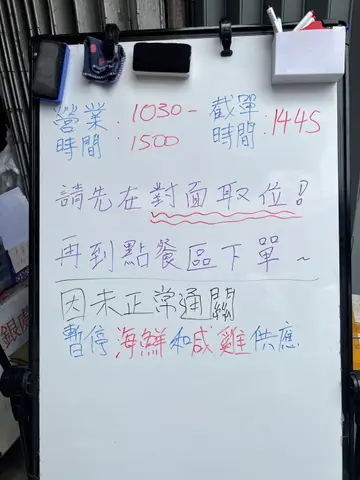 營業時間:1030-1500
截單時間:1445
請先在對面取位!
再到點餐區下單~
因未正常通關
暫停海鮮和咸雞供應